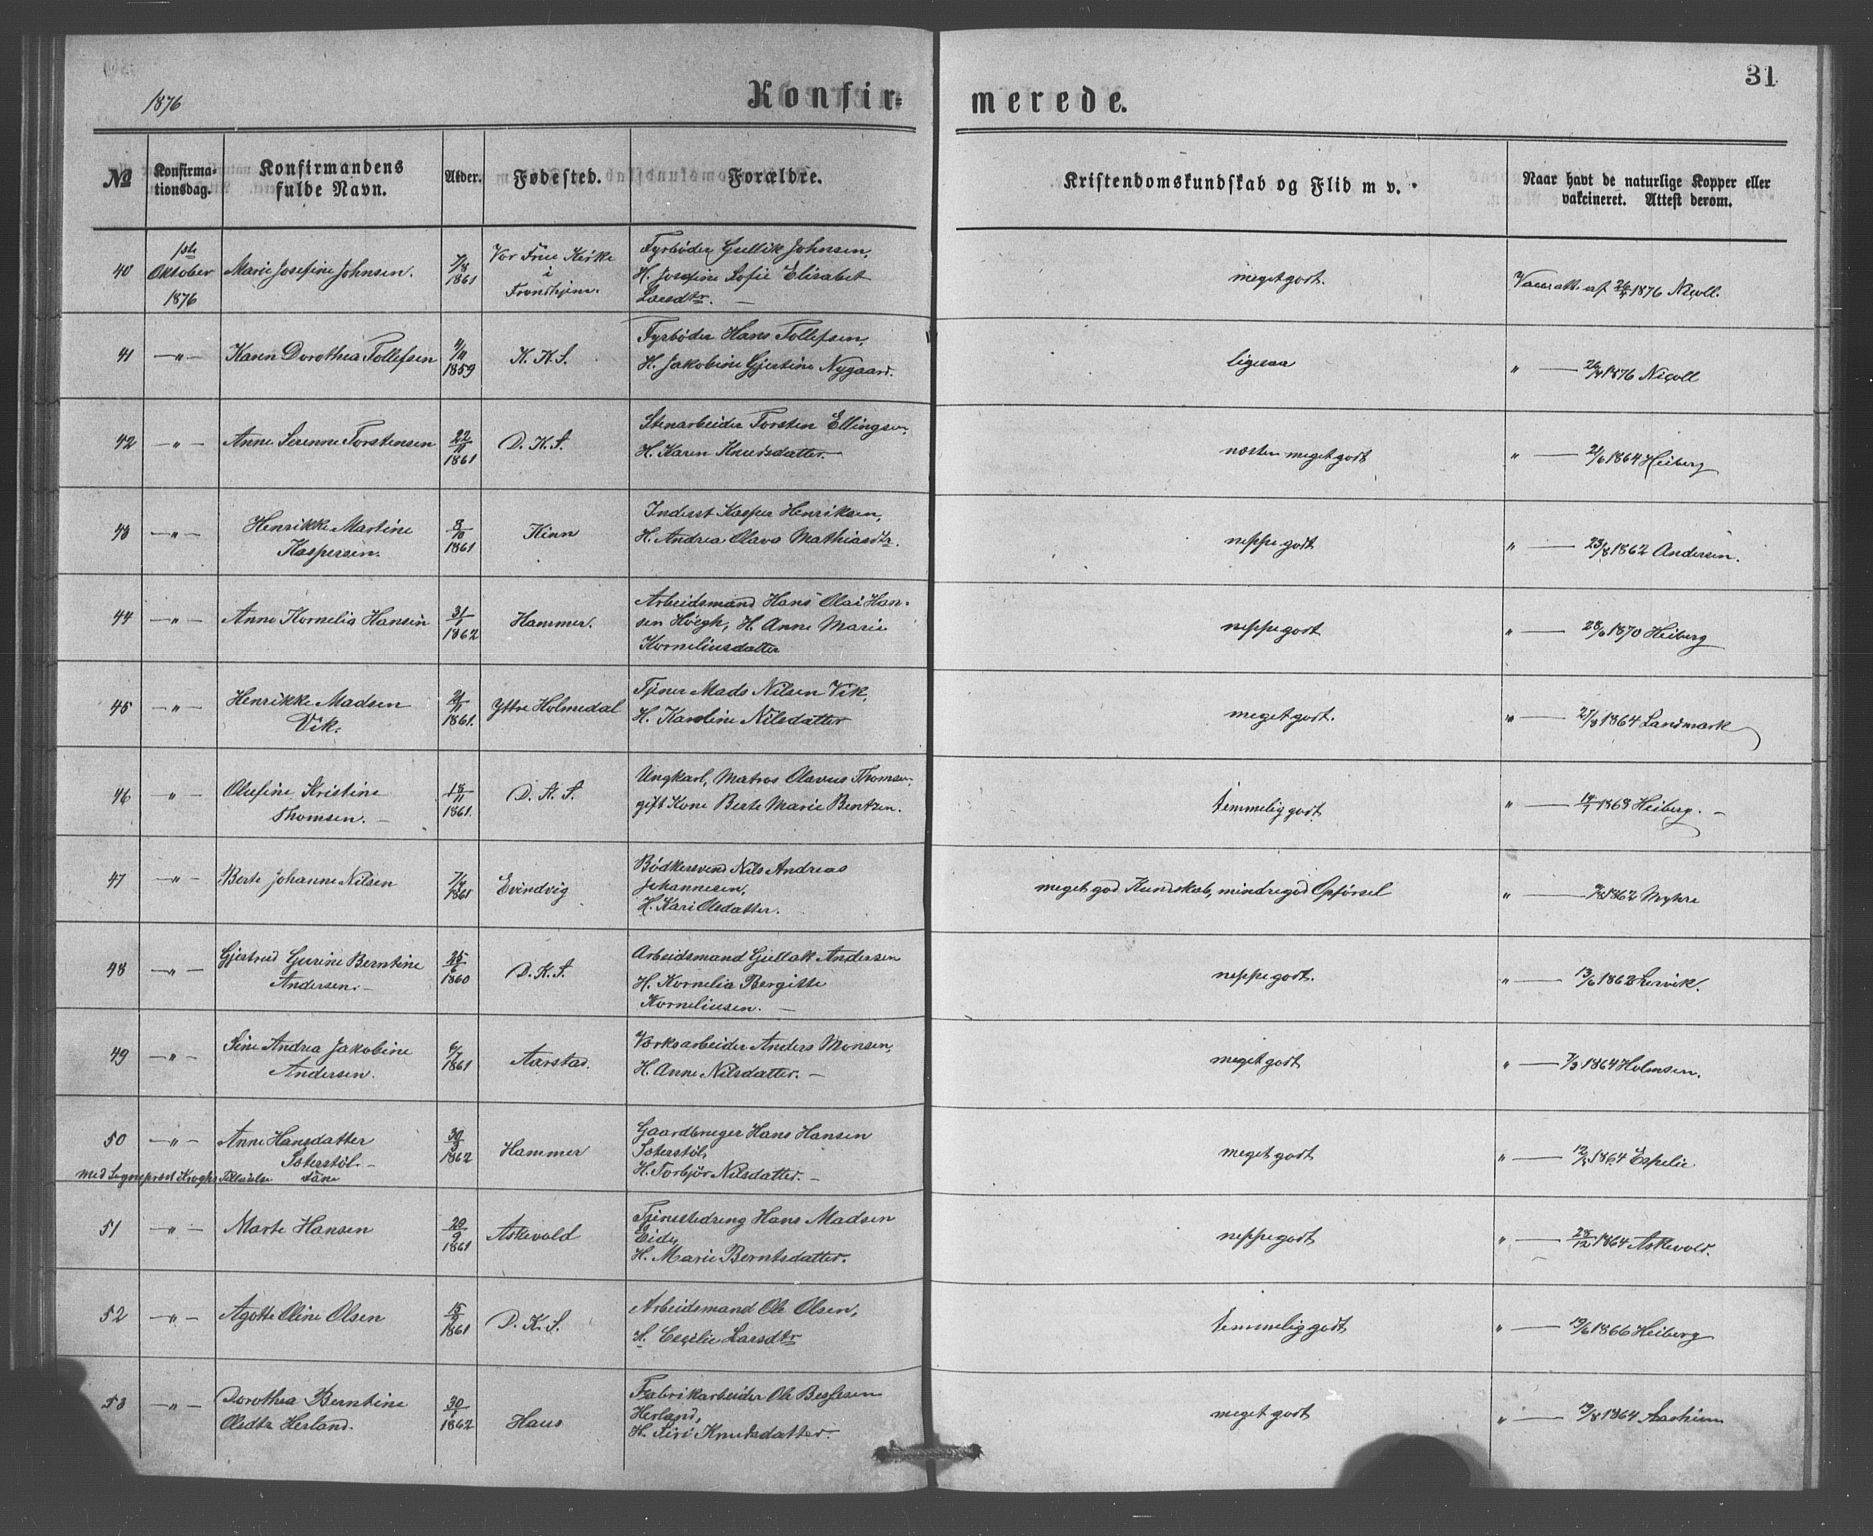 31
1876
Konfir=
merede.
No
Konfirma-
tionsdag.
Konfirmandens
fulde Navn.
Alder.
Fødested.
Forældre.
Kristendomskundskab og Flid m v.
Naar havt de naturlige Kopper eller
vakcineret. Attest derom.
40
1ste
Oktober
1876
Marie Josefine Johnsen.
7/8
1861
Vor Frue Kirke
i
Trondhjem.
Fyrbøder Gullik Johnsen,
H. Josefine Sofie Elisabet
Larsdtr. —
meget godt.
1876 Nicoll.
41
—"—
Karen Dorothea Tollefsen
1859
K. K. S.
Fyrbøder Hans Tollefsen,
H. Jakobine Gjertine Nygaard.
ligesaa
" — 1876 Nicoll
42
—"—
Anne Serenne Torstensen
22/11
1861
D. K. S.
Stenarbeider Torsten Ellingsen,
H. Karen Knudsdatter. —
næsten meget godt
" — 2/6 1864 Heiberg
43
—"—
Henrikke Martine
Kaspersen.
8/10
1861
Kinn
Inderst Kasper Henriksen,
H. Andrea Olava Mathiasdtr.
neppe godt
" — 23/8 1862 Andersen.
44
—"—
Anne Kornelia Hansen
31/1
1862
Hammer.
Arbeidsmand Hans Olai Han-
sen Høegh, H. Anne Marie
Korneliusdatter
neppe godt
" — 28/6 1870 Heiberg
45
—"—
Henrikke Madsen
Vik.
21/11
1861.
Yttre Holmedal
Tjener Mads Nilsen Vik,
H. Karoline Nilsdatter
meget godt.
" — 1864 Landmark
46
—"—
Olefine Kristine
Thomsen. —
18/11
1861.
D. K. S.
Ungkarl, Matros Olavus Thomsen,
gift Kone Berte Marie Bentzen.
temmelig godt
" — 1868 Heiberg. —
47
—"—
Berte Johanne Nilsen
1861
Evindvig
Bødkersvend Nils Andreas
Johannesen,
H. Kari Olsdatter.
meget god Kundskab, mindre god Opførsel
" — 1862 Myhre
48
—"—
Gjertrud Gurine Berntine
Andersen. —
25/6
1860
D. K. S.
Arbeidsmand Gullak Andersen
H. Kornelia Bergitte
Korneliusen. —
neppe godt.
" — 13/6 1862 Lervik.
49
—"—
Sine Andrea Jakobine
Andersen.
6/7
1861
Aarstad.
Værksarbeider Anders Monsen,
H. Anne Nilsdatter. —
meget godt
" — 1864 Holmsen.
50
—"—
Anne Hansdatter
Sæterstøl. —
30/3
1862
Hammer
Gaardbruger Hans Hansen
Sæterstøl,
H. Torbjør Nilsdatter. —
meget godt
" — 12/8 1864 Espelie
med Sogneprest Kroghs Tilladelse
51
—"—
Marte Hansen
20/9
1861
Askevold
Tjenestedreng Hans Madsen
Eide,
H. Marie Berntsdatter.
neppe godt
" — 28/12 1864 Askevold.
52
—"—
Agotte Oline Olsen
15/9
1861
D. K. S.
Arbeidsmand Ole Olsen,
H. Cecilie Larsdtr
temmelig godt
" — 19/6 1866 Heiberg
53
—"—
Dorothea Berntine
Olsdtr Herland.
30/1
1862
Haus
Fabrikarbeider Ole Børgesen
Herland,
H. Siri Knudsdatter.
meget godt
" — 1864